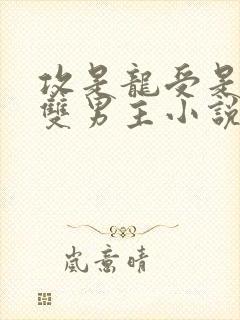 攻是龍受是
雙男主小說
嵐意晴